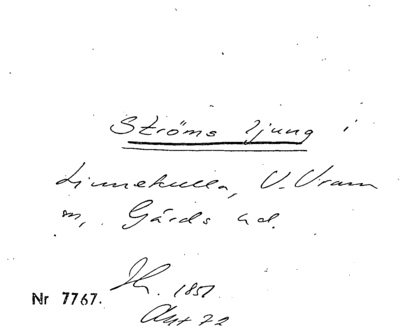 Ströms ljung i
Linnekulla, V. Vram
m, Gärds hd.
Nr 7767. 1851
72